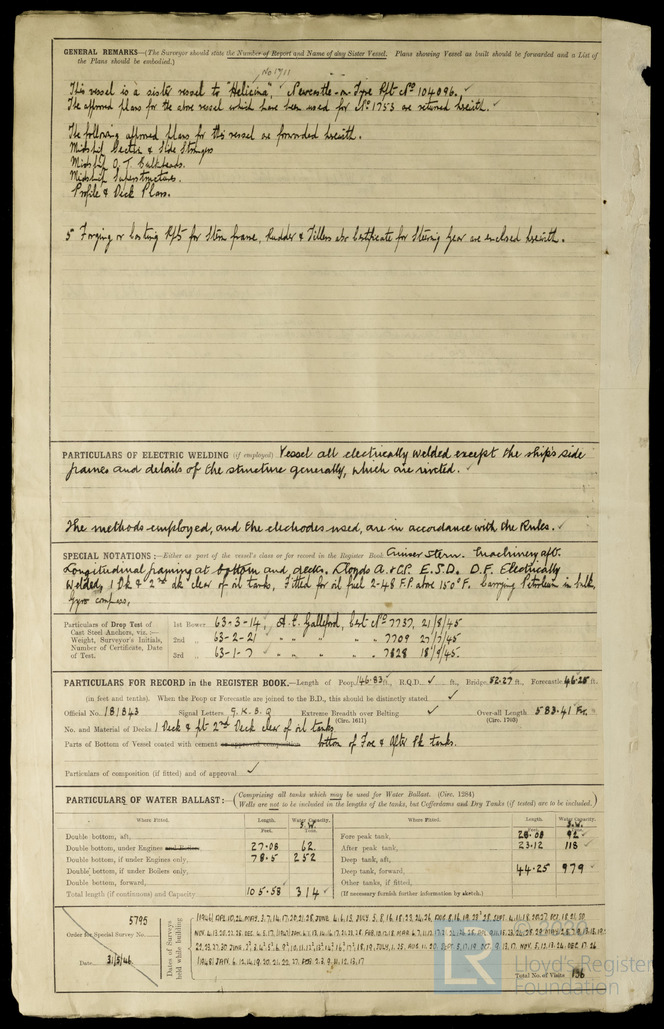 GENERAL REMARKS—(The Surveyor should state the Number of Report and Name of any Sister Vessel. Plans showing Vessel as built should be forwarded and a List of
the Plans should be embodied.)
No 1711
This vessel is a sister vessel to "Helicina", Newcastle-on-Tyne Rpt No 104096. ✓
The approved plans for the above vessel which have been used for No 1753 are returned herewith. ✓
The following approved plans for this vessel are forwarded herewith.
Midship Section & Side Stringers
Midship O.T. Bulkheads.
Midship Superstructure.
Profile & Deck Plans.
5 Forging or Casting Rpts for Stern frame, Rudder & Tillers also Certificate for Steering Gear are enclosed herewith.
PARTICULARS OF ELECTRIC WELDING (if employed) Vessel all electrically welded except the ship's side
frames and details of the structure generally, which are riveted. ✓
The methods employed, and the electrodes used, are in accordance with the Rules. ✓
SPECIAL NOTATIONS:—Either as part of the vessel's class or for record in the Register Book Cruiser Stern. Machinery aft.
Longitudinal framing at bottom and decks. Lloyds A. & C.P. E.S.D. D.F. Electrically
Welded, 1 Dk & 2nd dk clear of oil tanks, Fitted for oil fuel 2-48 F.P above 150°F. Carrying Petroleum in bulk,
Gyro compass,
Particulars of Drop Test of
Cast Steel Anchors, viz. :—
Weight, Surveyor's Initials,
Number of Certificate, Date
of Test.
1st Bower 63-3-14 Cert No 7737, 21/8/45
2nd „ 63-2-21 „ „ „ „ 7709
3rd „ 63-1-7 „ „ „ „ 7828
PARTICULARS FOR RECORD in the REGISTER BOOK.—Length of Poop 146.83 ft., R.Q.D. ✓ ft., Bridge 52.27 ft., Forecastle 46.25 ft.
(in feet and tenths). When the Poop or Forecastle are joined to the B.D., this should be distinctly stated ✓
Official No. 181843 Signal Letters G.K.B.Q Extreme Breadth over Belting ✓ Over-all Length 583.41 Ft.
(Circ. 1611) (Circ. 1703)
No. and Material of Decks 1 Deck & pt 2nd Deck clear of oil tanks
Parts of Bottom of Vessel coated with cement or approved composition bottom of Fore & After Pk tanks.
Particulars of composition (if fitted) and of approval ✓
PARTICULARS OF WATER BALLAST:—(Comprising all tanks which may be used for Water Ballast. (Circ. 1284)
Wells are not to be included in the lengths of the tanks, but Cofferdams and Dry Tanks (if tested) are to be included.)
Where Fitted. Length. Water Capacity. Where Fitted. Length. Water Capacity.
Feet. S.W. Tons. Feet. S.W. Tons.
Double bottom, aft, Fore peak tank, 28.08 92
Double bottom, under Engines and Boilers 27.08 62. After peak tank, 23.12 118
Double bottom, if under Engines only, 78.5 252 Deep tank, aft,
Double bottom, if under Boilers only, Deep tank, forward, 44.25 979
Double bottom, forward, Other tanks, if fitted,
Total length (if continuous) and Capacity 105.58 314 (If necessary furnish further information by sketch.)
5795
Order for Special Survey No.
Date 31/5/46
Dates of Surveys
held while building
Total No. of Visits 136
© 2020
LR
Lloyd's Register
Foundation